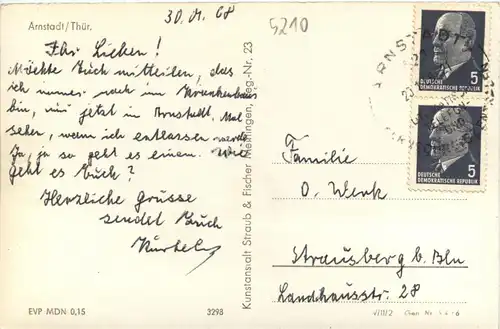 Arnstadt/Thür.
30.01.68
5210
Ihr Lieben!
Möchte Euch mitteilen, das
ich immer noch im Krankenhaus
bin, nur jetzt in Arnstadt. Mal
sehen, wann ich entlassen werde
Ja, ja so geht es einem. Wie
geht es Euch?
Herzliche Grüsse
sendet Euch
EVP MDN 0,15
3298
Kunstanstalt Straub & Fischer Meiningen, Reg.-Nr. 23
ARNSTADT
5
DEUTSCHE
DEMOKRATISCHE REPUBLIK
5
DEUTSCHE
DEMOKRATISCHE REPUBLIK
Familie
O. Werk
Strausberg b. Bln
Landhausstr. 28
V/11/2